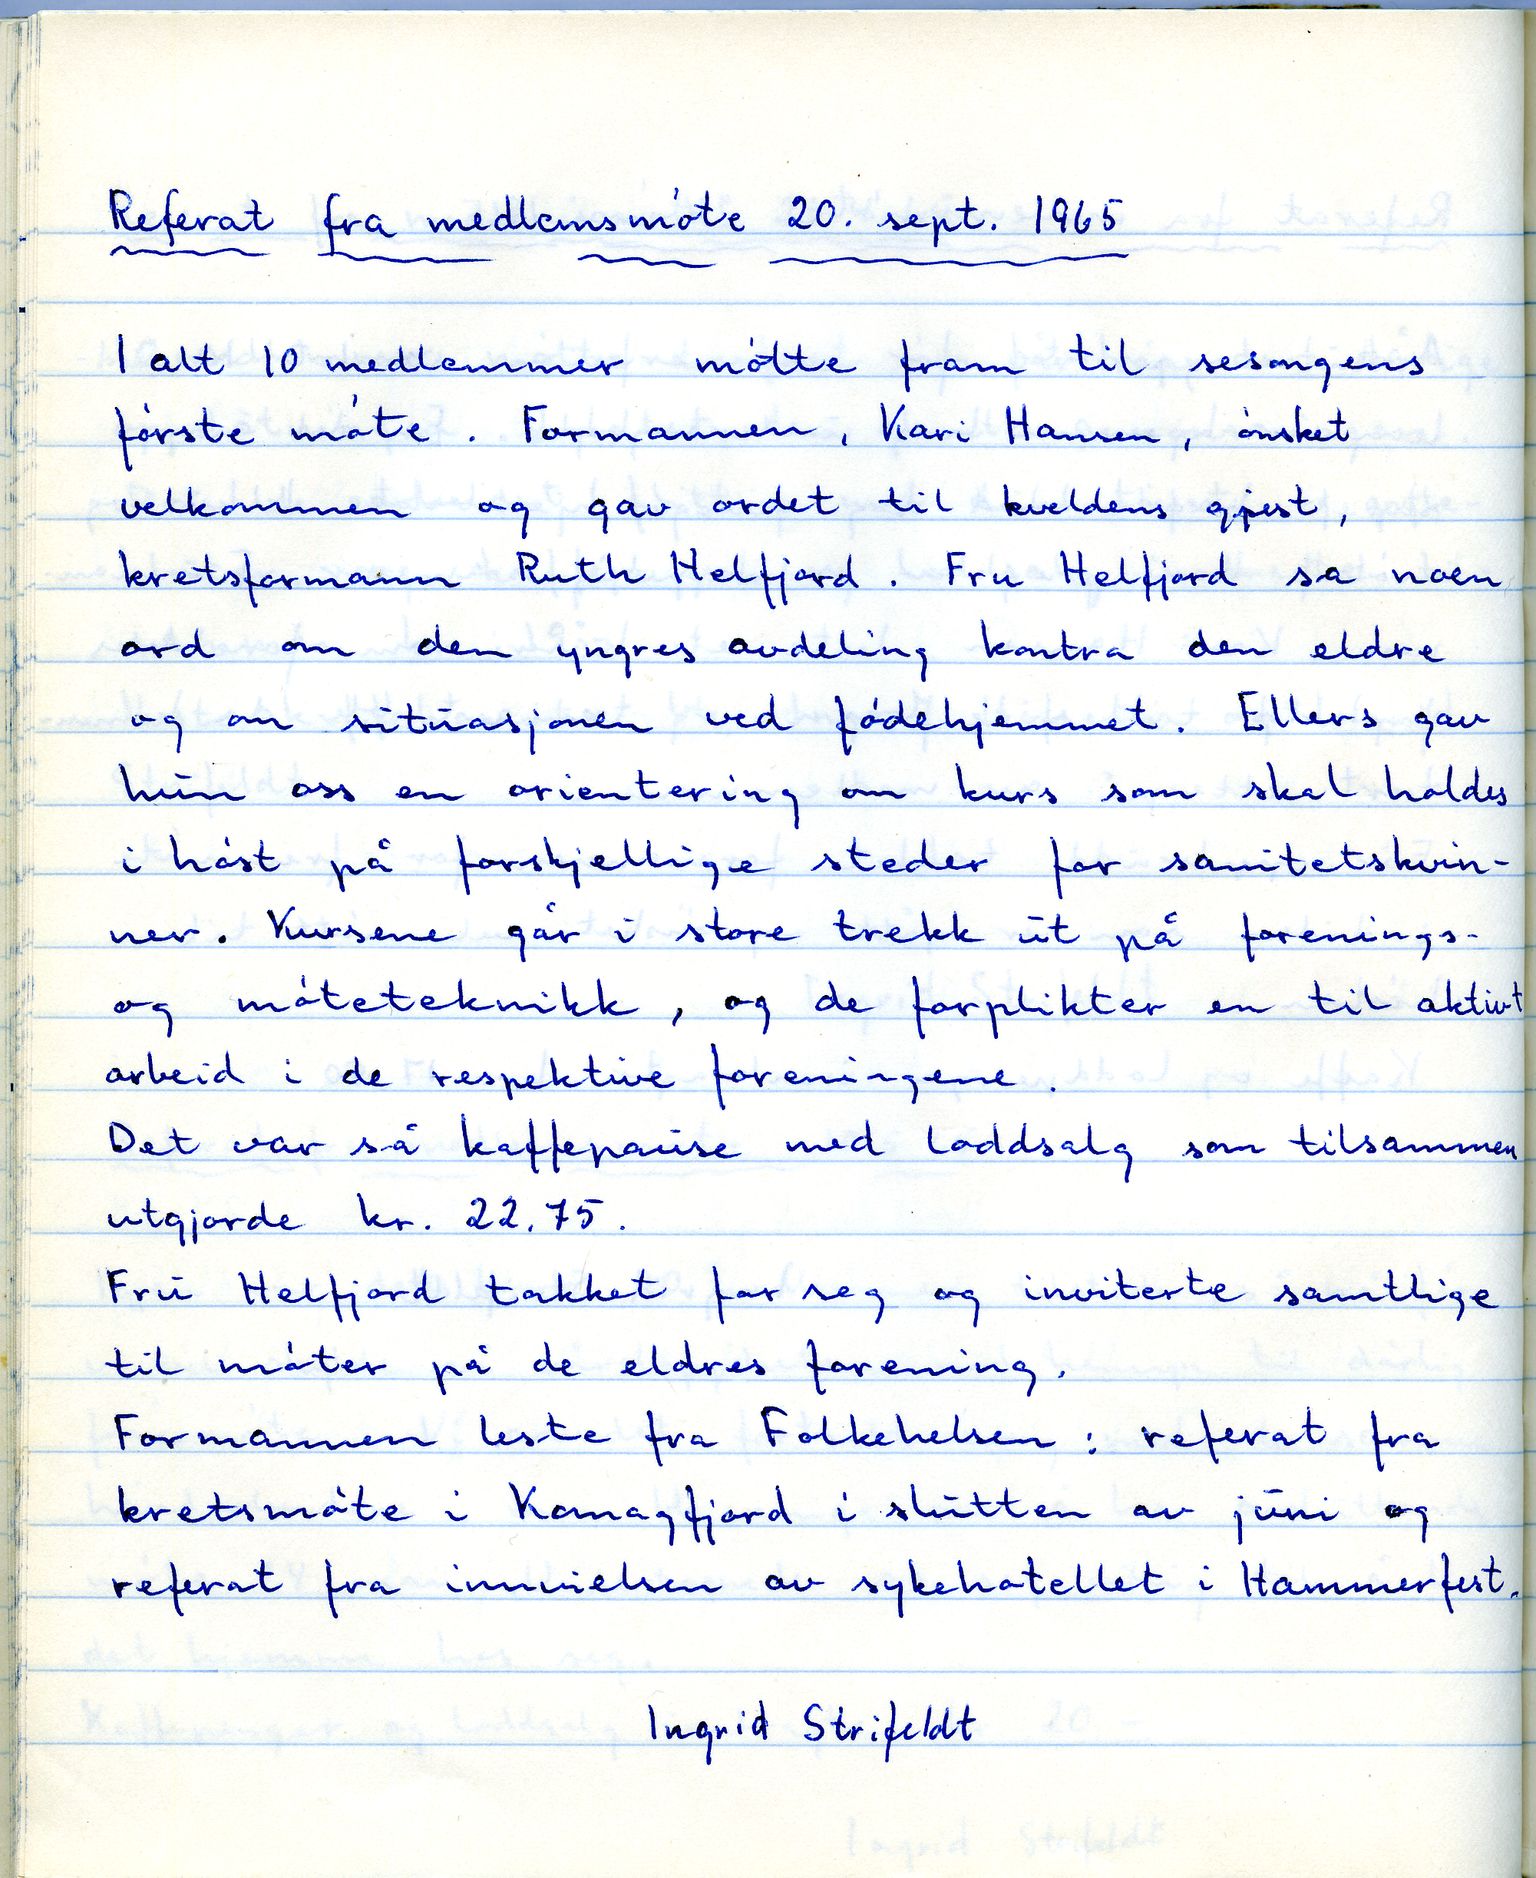 Referat fra medlemsmøte 20. sept. 1965
I alt 10 medlemmer møtte fram til sesongens
første møte. Formannen, Kari Hansen, ønsket
velkommen og gav ordet til kveldens gjest,
kretsformann Ruth Helfjord. Fru Helfjord sa noen
ord om den yngres avdeling kontra den eldre
og om situasjonen ved fødehjemmet. Ellers gav
hun oss en orientering om kurs som skal holdes
i høst på forskjellige steder for sanitetskvin-
ner. Kursene går i store trekk ut på forenings-
og møteteknikk, og de forplikter en til aktivt
arbeid i de respektive foreningene.
Det var så kaffepause med loddsalg som tilsammen
utgjorde kr. 22.75.
Fru Helfjord takket for seg og inviterte samtlige
til møter på de eldres forening.
Formannen leste fra Folkehelsen: referat fra
kretsmøte i Komagfjord i slutten av juni og
referat fra innvielsen av sykehotellet i Hammerfest.
Ingrid Strifeldt